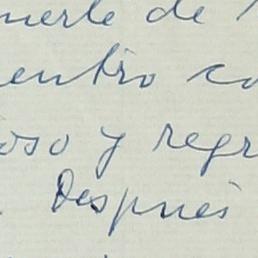 muerte de
entro co
oso y regr
Después